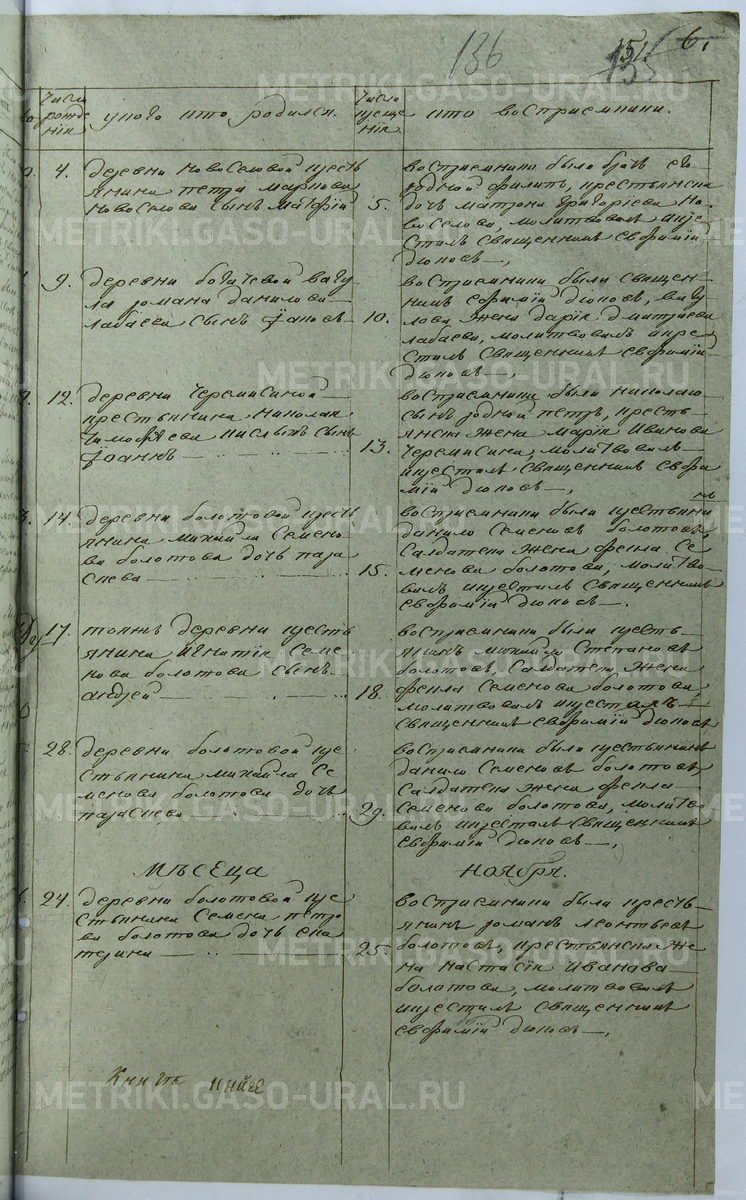 136
154
135
6.
Число рожденiя
у кого кто родился.
Число крещенiя
кто восприемники.
4.
деревни новоселовой кресть
янина петра маркова
новоселова сынъ матфiй
5.
восприемники были братъ его
родной филипъ, крестьянска
дочь матрона григорiева но-
воселова, молитвовалъ икре
стилъ священникъ евфимiй
дюковъ
9.
деревни богачевой вагу
ла романа данилова
лабаева сынъ
10.
восприемники были священ-
никъ евфимiй дюковъ, вагу
лова жена дарiя дмитрiева
лабаева, молитвовалъ икре
стилъ священникъ евфимiй
дюковъ
12.
деревни Черемисиной
крестьянина николая
тимофѣева кислыхъ сынъ
iоаннъ
13.
восприемники были николаю
сынъ родной петръ, кресть
янска жена марiя иванова
Черемисина, молитвовалъ
икрестилъ священникъ евфи
мiй дюковъ
14.
деревни болотовой кресть
янина михайла семено
ва болотова дочь пара
скева
15.
восприемники были крестьянинъ
данило семеновъ болотовъ,
Салдатска жена фекла Се
менова болотова, молитво
валъ икрестилъ священникъ
евфимiй дюковъ.
17.
тояжъ деревни кресть
янина игнатiя семе
нова болотова сынъ
андрей
18.
восприемники были кресть
янинъ михайла Степановъ
болотовъ, Салдатска жена
фекла Семенова болотова,
молитвовалъ икрестилъ
священникъ евфимiй дюковъ
28.
деревни болотовой кре
стьянина михайла Се
менова болотова дочь
параскева
29.
восприемники были крестьянинъ
данило Семеновъ болотовъ,
Салдатска жена фекла
Семенова болотова, молитво
валъ икрестилъ священникъ
евфимiй дюковъ
Мѣсеца Ноября.
24.
деревни болотовой кре
стьянина Семена петро
ва болотова дочь ека
терина
25.
восприемники были кресть
янинъ романъ леонтьевъ
болотовъ, крестьянская же
на настасiя иванава
болатова, молитвовалъ
икрестилъ священникъ
евфимiй дюковъ
METRIKI.GASO-URAL.RU